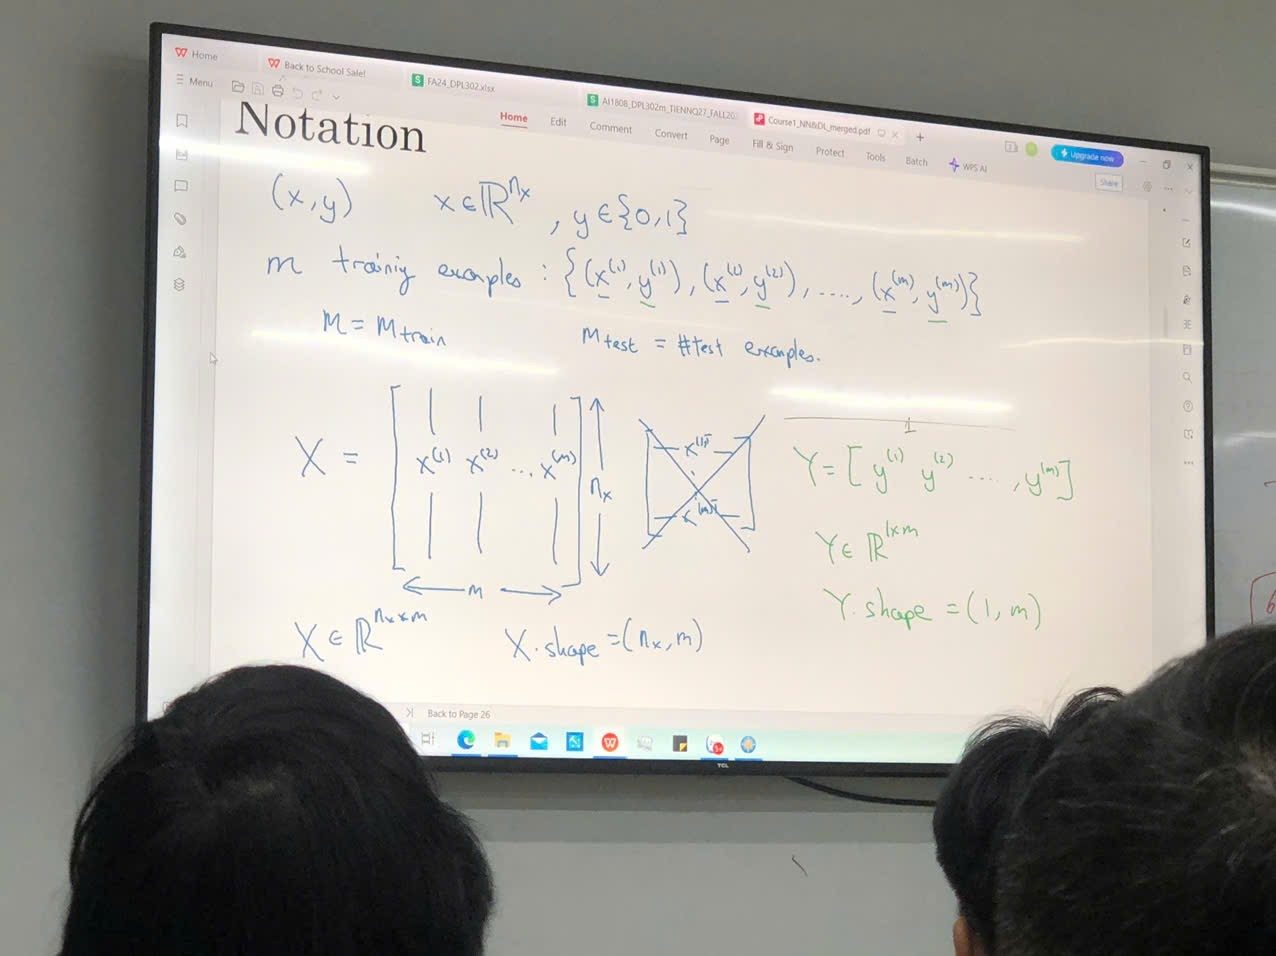 Home
Back to School Sale!
FA24_DPL302.xlsx
AI1808_DPL302m_TIENNQ27_FALL20
Course1_NN&DL_merged.pdf
Menu
Home Edit Comment Convert Page Fill & Sign Protect Tools Batch WPS AI
Upgrade now
Share
Notation
(x,y) x∈ℝ^{n_x}, y∈{0,1}
m training examples: {(x^{(1)}, y^{(1)}), (x^{(2)}, y^{(2)}), ...., (x^{(m)}, y^{(m)})}
M = M_{train} M_{test} = #test examples.
X = [x^{(1)} x^{(2)} ... x^{(m)}]
n_x
m
x^{(1)T}
x^{(m)T}
Y = [y^{(1)} y^{(2)} ...., y^{(m)}]
Y∈ℝ^{1×m}
Y.shape = (1, m)
X∈ℝ^{n_x×m} X.shape = (n_x, m)
Back to Page 26
TCL